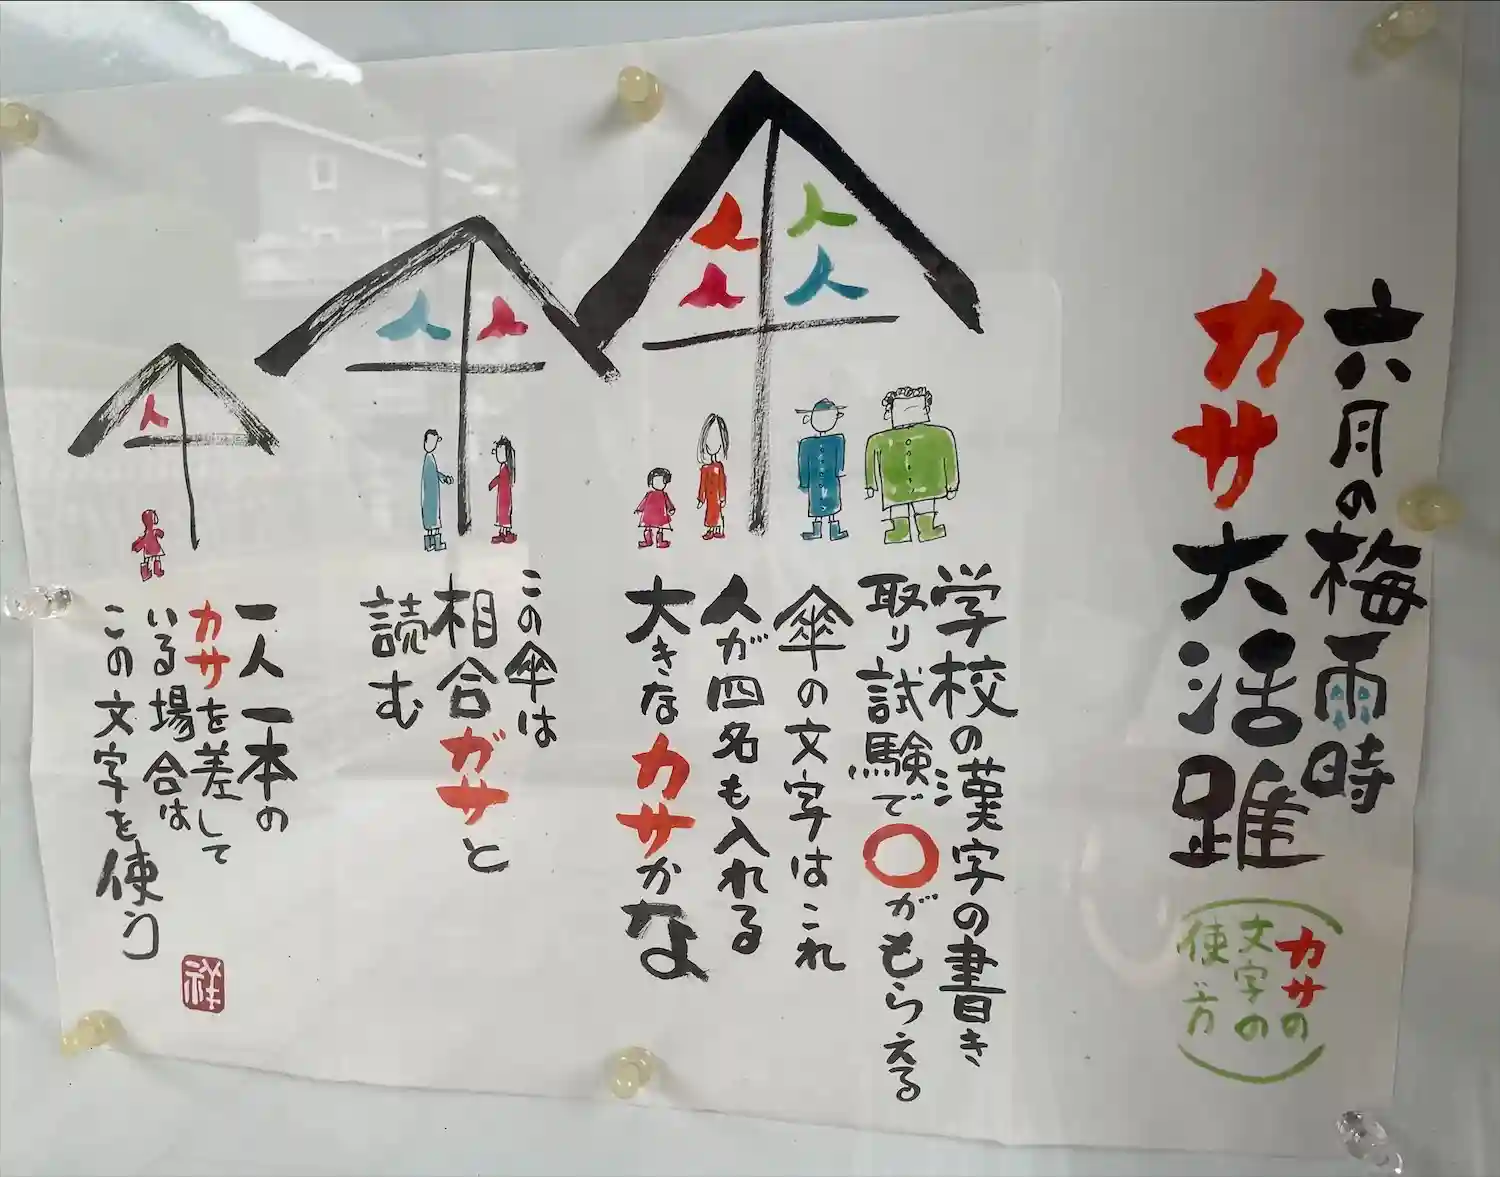 六月の梅雨時
カサ大活踓
(カサの
文字の
使い方)
学校の漢字の書き
取り試験で〇がもらえる
傘の文字はこれ
人が四名も入れる
大きなカサかな
この傘は
相合ガサと
読む
一人一本の
カサを差して
いる場合は
この文字を使う
祥